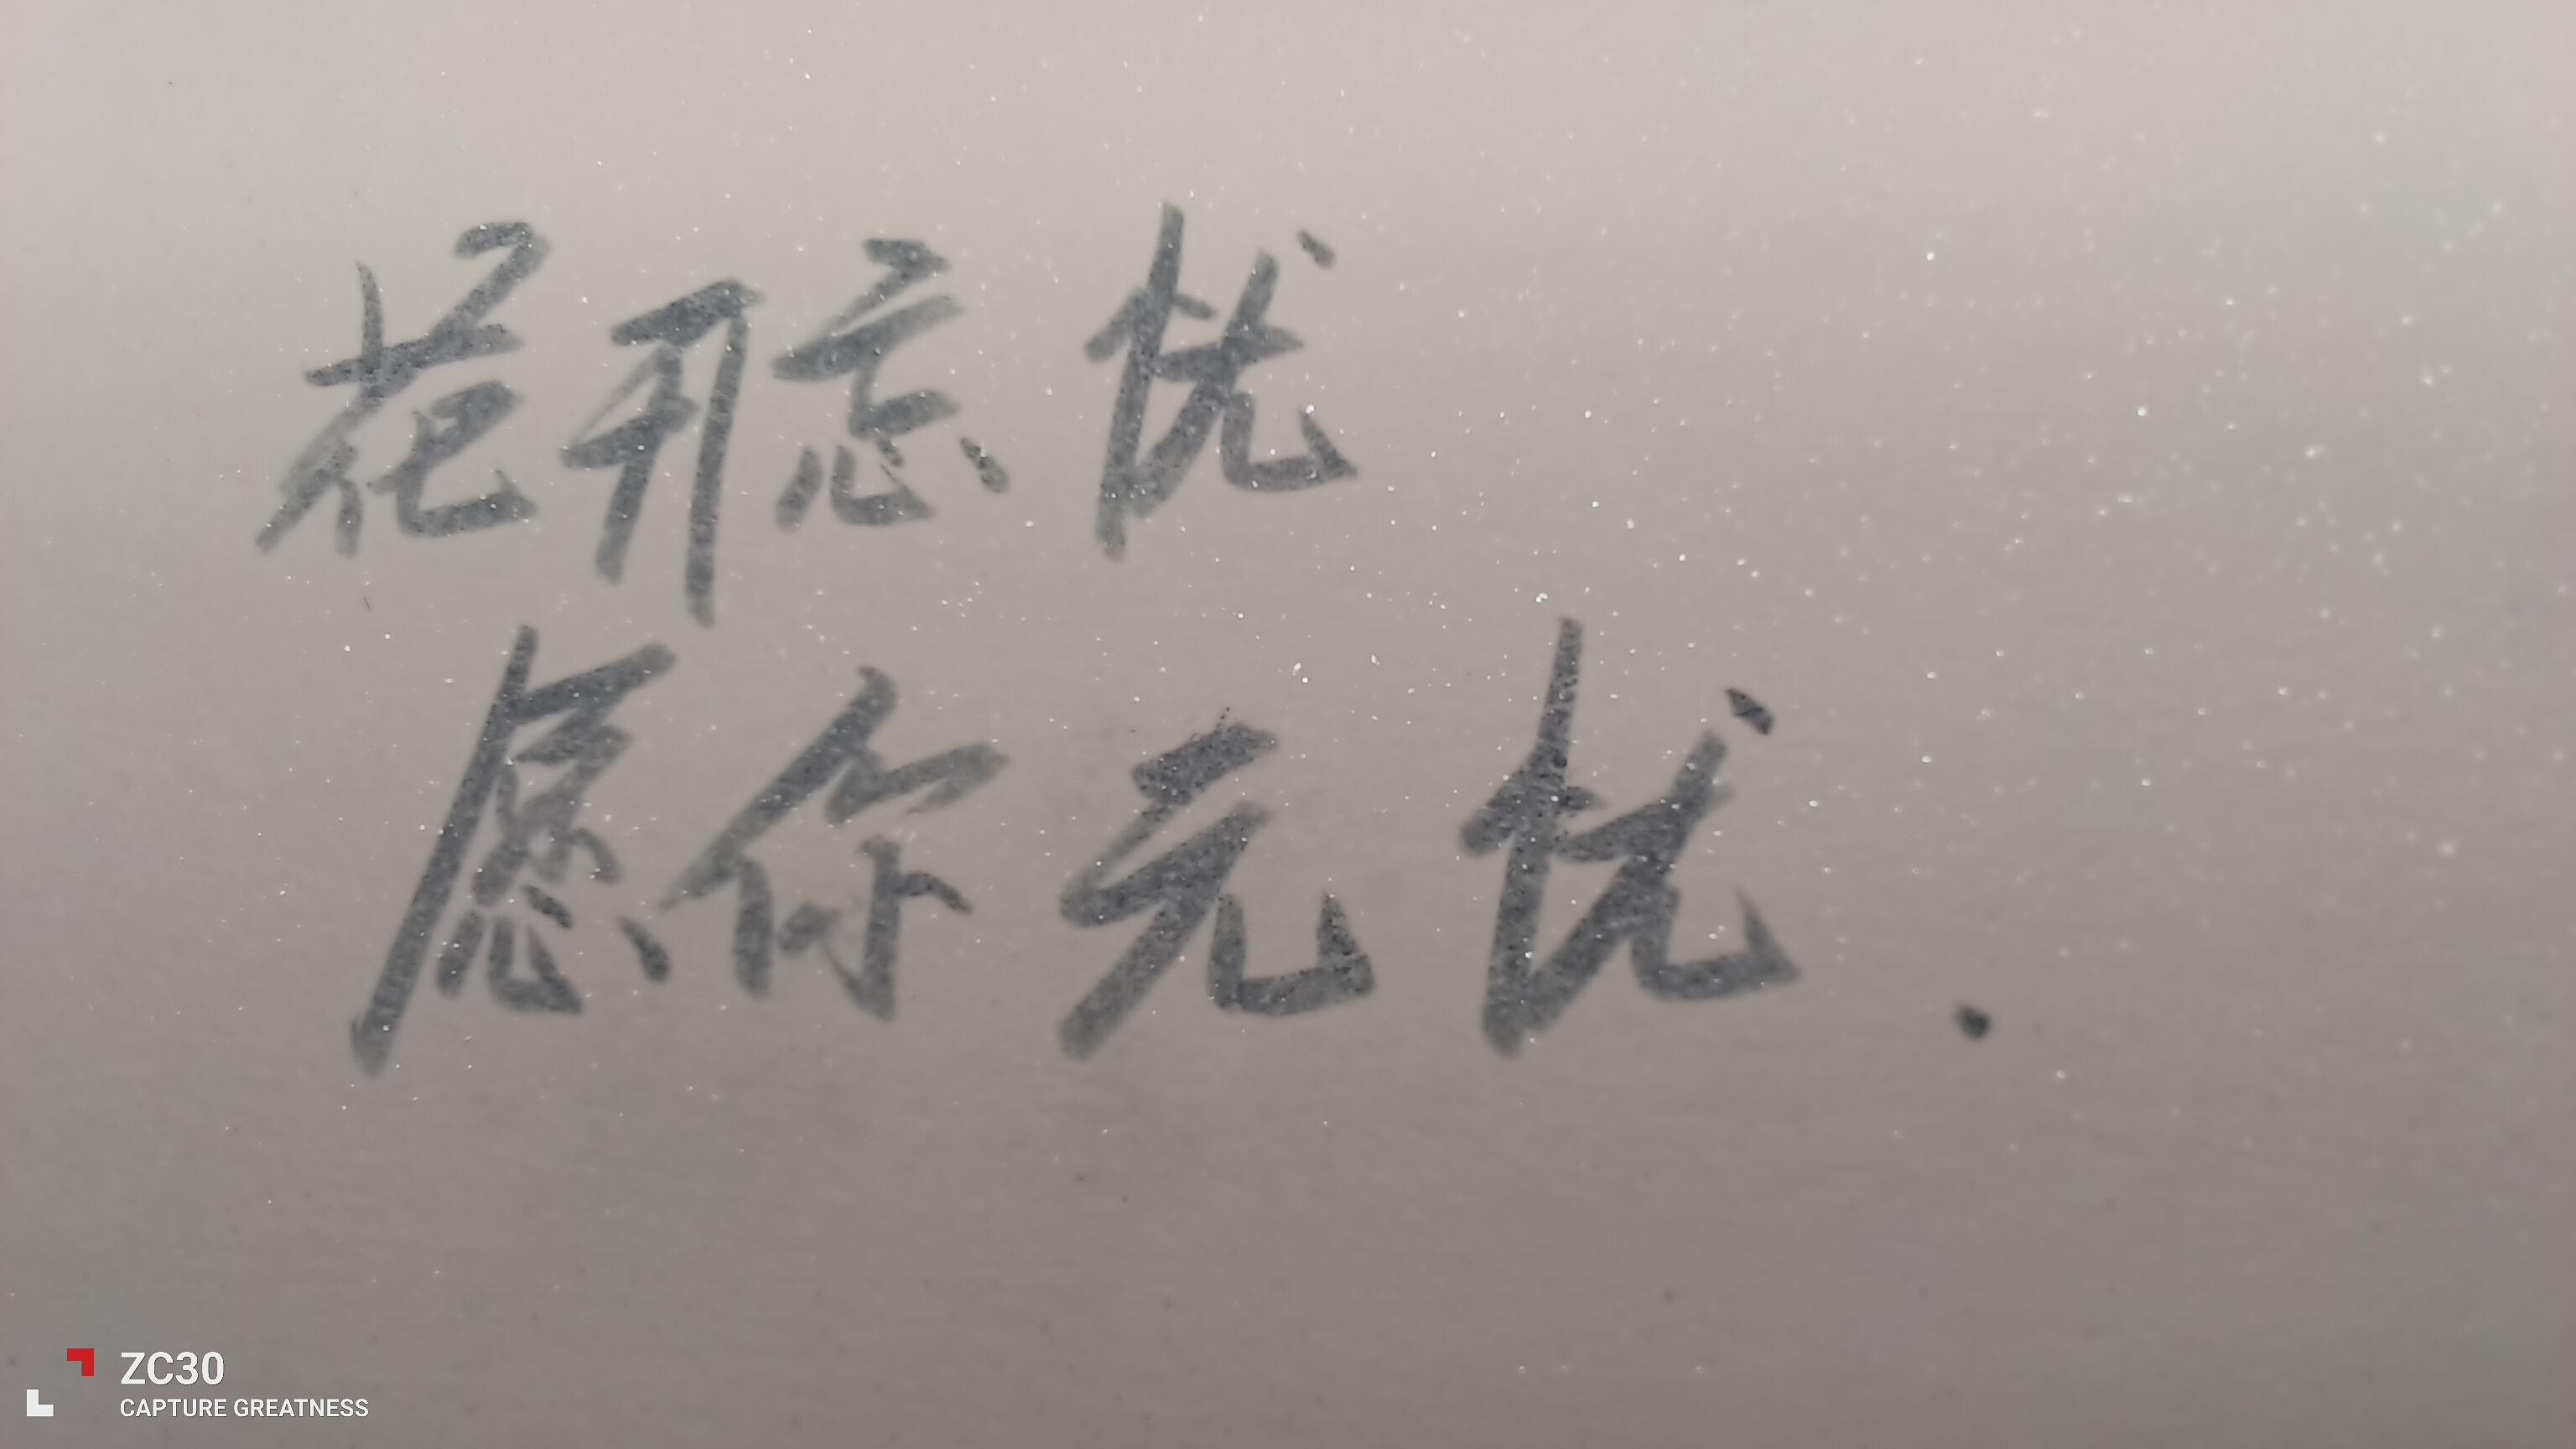 花开忘忧
愿你无忧.
ZC30
CAPTURE GREATNESS